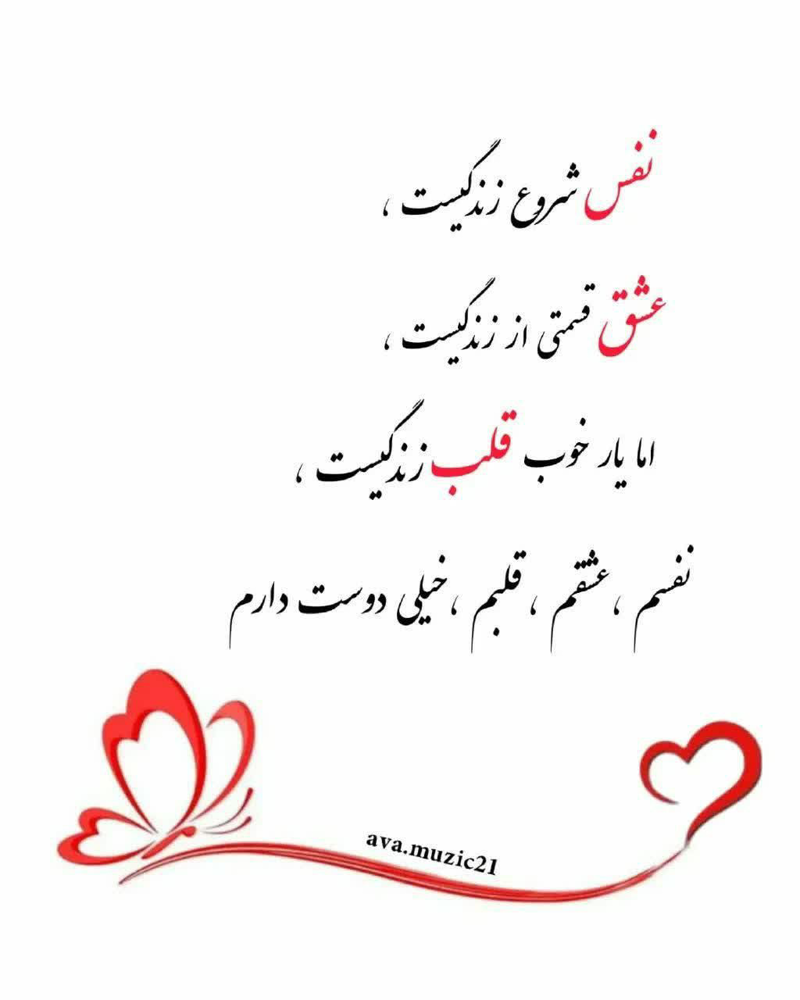 نفس شروع زندگیست ،
عشق قسمتی از زندگیست ،
اما یار خوب قلب زندگیست ،
نفسم ، عشقم ، قلبم ، خیلی دوست دارم
ava.muzic21